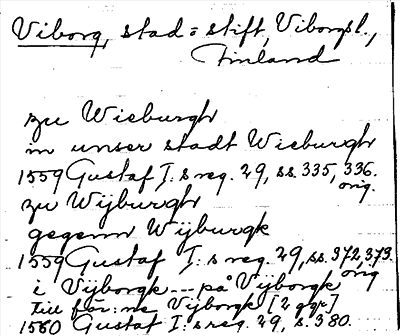 Viborg, stad = stift, Viborgsl.,
Finland
zu Wieburgh
in unser stadt Wieburgh
1559 Gustaf I:s reg. 29, ss. 335, 336.
orig.
zu Wijburgh
gegenn Wijburgk
1559 Gustaf I:s reg. 29, ss. 372, 373.
orig
i Vijborgk --- på Vijborgk
till för:ne Vijborgk [2 ggr]
1560 Gustaf I:s reg. 29, s. 380.